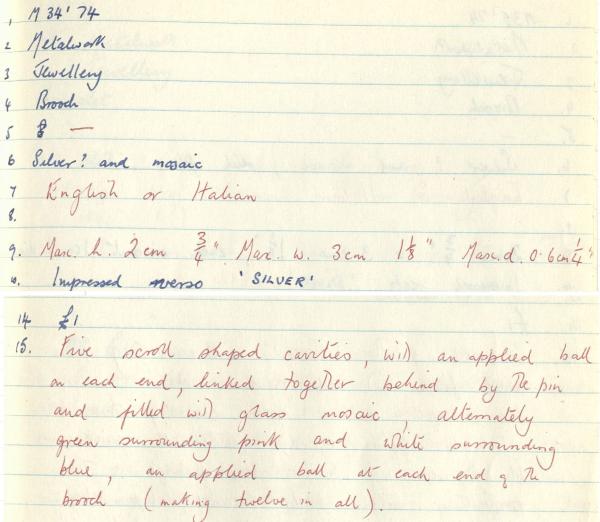 1 M 34' 74
2 Metalwork
3 Jewellery
4 Brooch
5 —
6 Silver? and mosaic
7 English or Italian
8.
9. Max. h. 2 cm 3/4" Max. w. 3 cm 1 1/8" Max. d. 0.6 cm 1/4"
10. Impressed verso 'SILVER'
14 £1
15. Five scroll shaped cavities, with an applied ball
on each end, linked together behind by the pin
and filled with glass mosaic, alternately
green surrounding pink and white surrounding
blue, an applied ball at each end of the
brooch (making twelve in all).